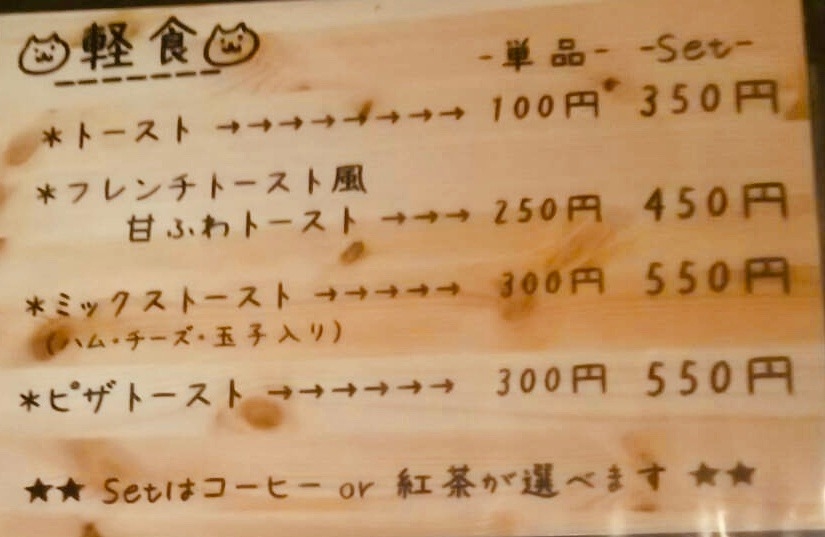 軽食
-単品- -Set-
*トースト →→→→→→→→ 100円 350円
*フレンチトースト風
甘ふわトースト →→→ 250円 450円
*ミックストースト →→→→→ 300円 550円
(ハム・チーズ・玉子入り)
*ピザトースト →→→→→→ 300円 550円
★★ Setはコーヒー or 紅茶が選べます ★★